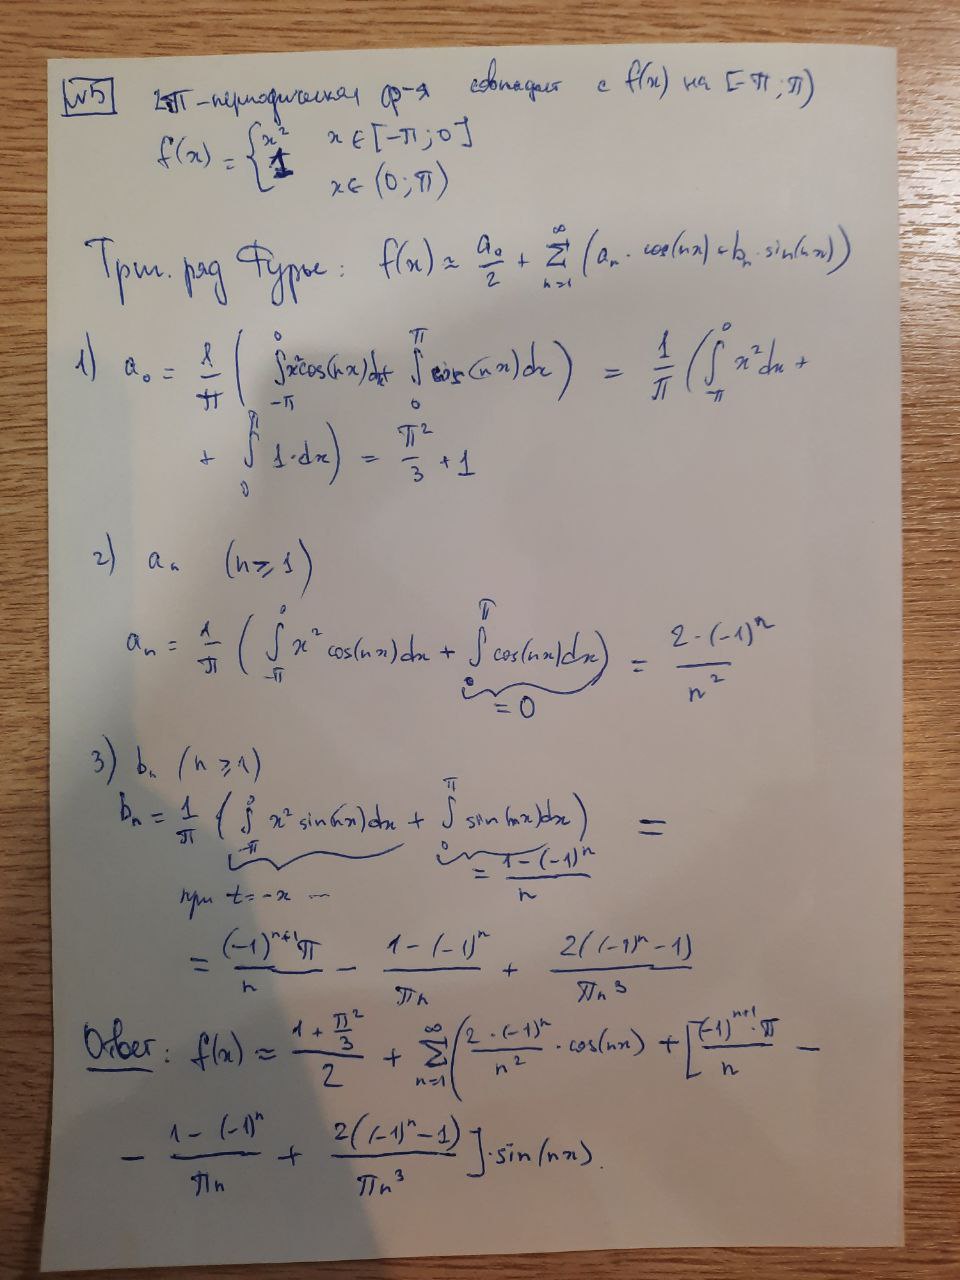 №5 2π-периодическая ф-я совпадает с f(x) на [-π; π)
f(x) = { x² x ∈ [-π; 0]
1 x ∈ (0; π)
Триг. ряд Фурье: f(x) ≈ a₀/2 + ∑_{n=1}^{∞} (aₙ · cos(nx) + bₙ · sin(nx))
1) a₀ = 1/π ( ∫_{-π}^{0} x² cos(nx)dx + ∫_{0}^{π} cos(nx)dx ) = 1/π ( ∫_{-π}^{0} x²dx +
+ ∫_{0}^{π} 1·dx ) = π²/3 + 1
2) aₙ (n ≥ 1)
aₙ = 1/π ( ∫_{-π}^{0} x² cos(nx)dx + ∫_{0}^{π} cos(nx)dx ) = 2·(-1)ⁿ/n²
= 0
3) bₙ (n ≥ 1)
bₙ = 1/π ( ∫_{-π}^{0} x² sin(nx)dx + ∫_{0}^{π} sin(nx)dx ) =
при t = -x ... = 1-(-1)ⁿ/n
= (-1)ⁿ⁺¹π/n - 1-(-1)ⁿ/πn + 2((-1)ⁿ-1)/πn³
Ответ: f(x) ≈ (1 + π²/3)/2 + ∑_{n=1}^{∞} ( 2·(-1)ⁿ/n² · cos(nx) + [ (-1)ⁿ⁺¹·π/n -
- 1-(-1)ⁿ/πn + 2((-1)ⁿ-1)/πn³ ] · sin(nx).